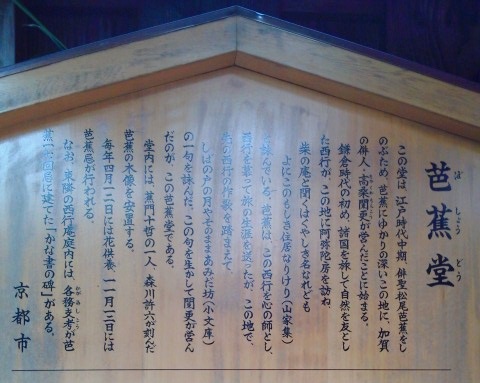 芭蕉堂
ば しょう どう
この堂は、江戸時代中期、俳聖松尾芭蕉をし
のぶため、芭蕉にゆかりの深いこの地に、加賀
の俳人、高桑闌更が営んだことに始まる。
鎌倉時代の初め、諸国を旅して自然を友とし
た西行が、この地に阿弥陀房を訪ね、
柴の庵と聞くはくやしき名なれども
よにこのもしき住居なりけり（山家集）
と詠んでいる。芭蕉は、この西行を心の師とし、
西行を慕って旅の生涯を送ったが、この地で、
先の西行の作歌を踏まえて、
しばのとの月やそのままあみだ坊（小文庫）
の一句を詠んだ。この句を生かして闌更が営ん
だのが、この芭蕉堂である。
堂内には、蕉門十哲の一人、森川許六が刻んだ
芭蕉の木像を安置する。
毎年四月一二日には花供養、一一月一二日には
芭蕉忌が行われる。
なお、東隣の西行庵庭内には、各務支考が芭
蕉一七回忌に建てた「かな書の碑」がある。
京都市